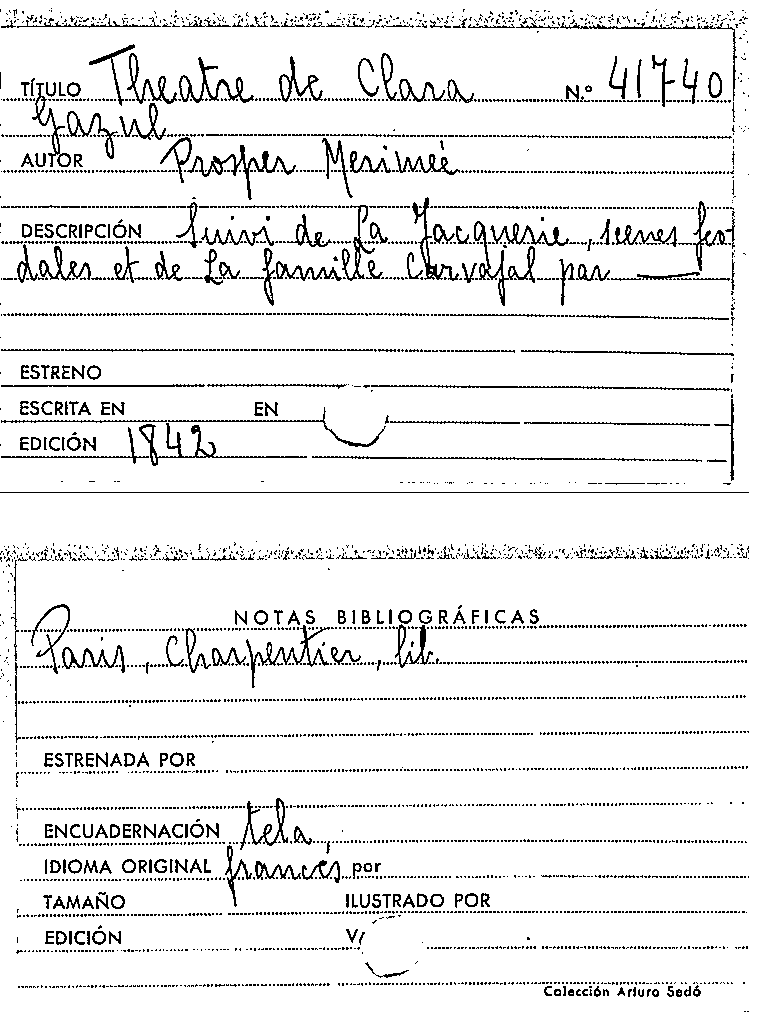 TÍTULO Theatre de Clara N.º 41740
Gazul
AUTOR Prosper Merimeé
DESCRIPCIÓN Suivi de La Jacquerie, scenes feo
dales et de La famille Carvajal par ———
ESTRENO
ESCRITA EN EN
EDICIÓN 1842
NOTAS BIBLIOGRÁFICAS
Paris, Charpentier, lib.
ESTRENADA POR
ENCUADERNACIÓN tela
IDIOMA ORIGINAL francés por
TAMAÑO ILUSTRADO POR
EDICIÓN
Colección Arturo Sedó